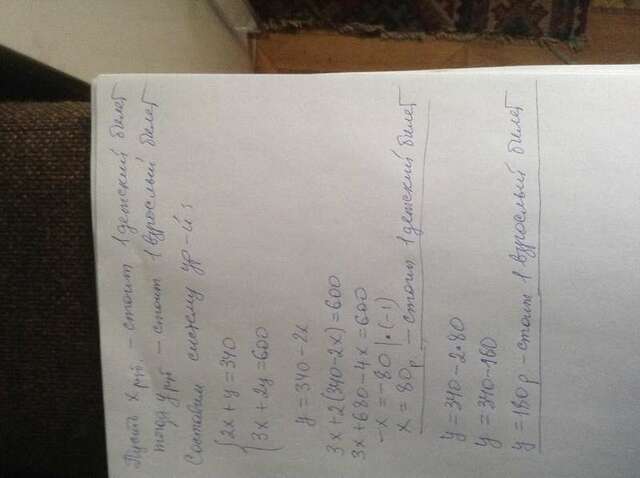 Пусть x руб. – стоит 1 детский билет
тогда y руб – стоит 1 взрослый билет
Составим систему ур-й:
2x + y = 340
3x + 2y = 600
y = 340 – 2x
3x + 2(340 – 2x) = 600
3x + 680 – 4x = 600
–x = –80 | • (–1)
x = 80р – стоит 1 детский билет
y = 340 – 2•80
y = 340 – 160
y = 180р – стоит 1 взрослый билет